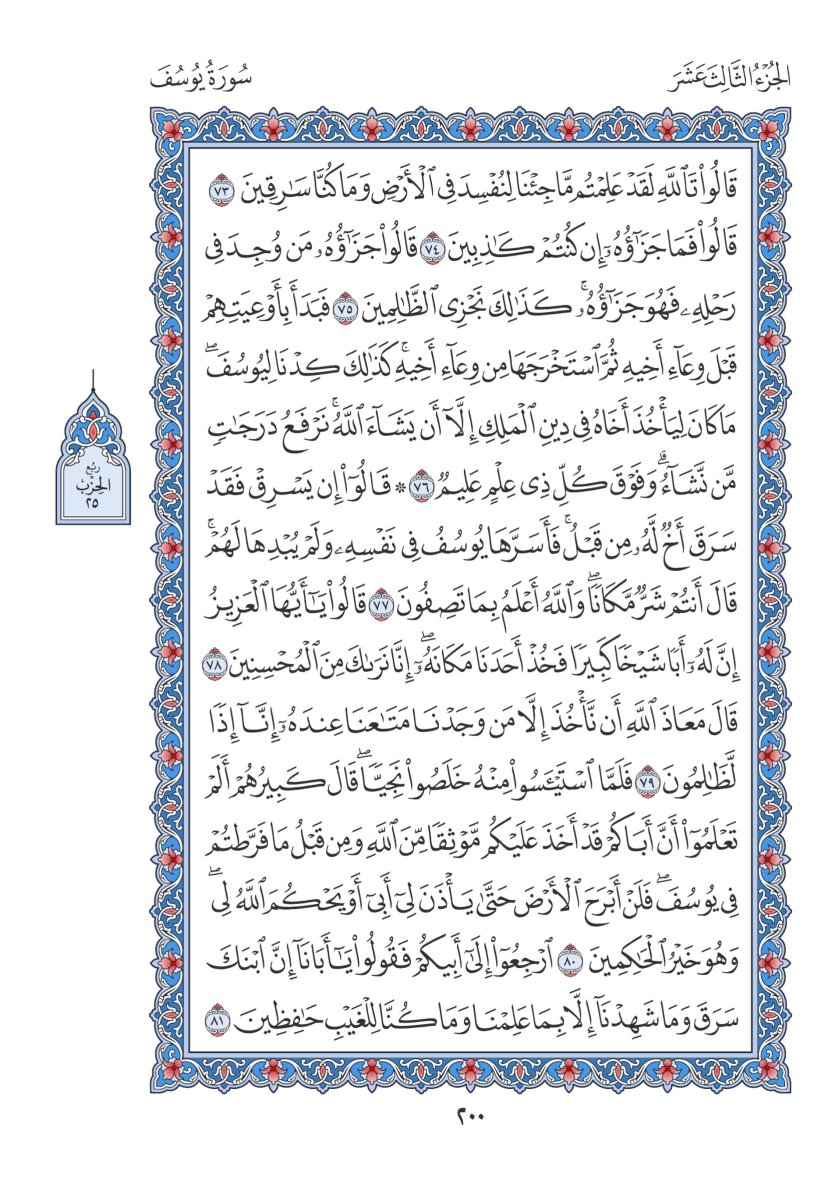 الجُزْءُ الثَّالِثَ عَشَرَ
سُورَةُ يُوسُفَ
قَالُوا۟ تَٱللَّهِ لَقَدْ عَلِمْتُم مَّا جِئْنَا لِنُفْسِدَ فِى ٱلْأَرْضِ وَمَا كُنَّا سَٰرِقِينَ ٧٣
قَالُوا۟ فَمَا جَزَٰٓؤُهُۥٓ إِن كُنتُمْ كَٰذِبِينَ ٧٤ قَالُوا۟ جَزَٰٓؤُهُۥ مَن وُجِدَ فِى
رَحْلِهِۦ فَهُوَ جَزَٰٓؤُهُۥ ۚ كَذَٰلِكَ نَجْزِى ٱلظَّٰلِمِينَ ٧٥ فَبَدَأَ بِأَوْعِيَتِهِمْ
قَبْلَ وِعَآءِ أَخِيهِ ثُمَّ ٱسْتَخْرَجَهَا مِن وِعَآءِ أَخِيهِ ۚ كَذَٰلِكَ كِدْنَا لِيُوسُفَ ۖ
مَا كَانَ لِيَأْخُذَ أَخَاهُ فِى دِينِ ٱلْمَلِكِ إِلَّآ أَن يَشَآءَ ٱللَّهُ ۚ نَرْفَعُ دَرَجَٰتٍ
مَّن نَّشَآءُ ۗ وَفَوْقَ كُلِّ ذِى عِلْمٍ عَلِيمٌ ٧٦ ۞ قَالُوٓا۟ إِن يَسْرِقْ فَقَدْ
سَرَقَ أَخٌ لَّهُۥ مِن قَبْلُ ۚ فَأَسَرَّهَا يُوسُفُ فِى نَفْسِهِۦ وَلَمْ يُبْدِهَا لَهُمْ ۚ
قَالَ أَنتُمْ شَرٌّ مَّكَانًا ۖ وَٱللَّهُ أَعْلَمُ بِمَا تَصِفُونَ ٧٧ قَالُوا۟ يَٰٓأَيُّهَا ٱلْعَزِيزُ
إِنَّ لَهُۥٓ أَبًا شَيْخًا كَبِيرًا فَخُذْ أَحَدَنَا مَكَانَهُۥٓ ۖ إِنَّا نَرَىٰكَ مِنَ ٱلْمُحْسِنِينَ ٧٨
قَالَ مَعَاذَ ٱللَّهِ أَن نَّأْخُذَ إِلَّا مَن وَجَدْنَا مَتَٰعَنَا عِندَهُۥٓ إِنَّآ إِذًا
لَّظَٰلِمُونَ ٧٩ فَلَمَّا ٱسْتَيْـَٔسُوا۟ مِنْهُ خَلَصُوا۟ نَجِيًّا ۖ قَالَ كَبِيرُهُمْ أَلَمْ
تَعْلَمُوٓا۟ أَنَّ أَبَاكُمْ قَدْ أَخَذَ عَلَيْكُم مَّوْثِقًا مِّنَ ٱللَّهِ وَمِن قَبْلُ مَا فَرَّطتُمْ
فِى يُوسُفَ ۖ فَلَنْ أَبْرَحَ ٱلْأَرْضَ حَتَّىٰ يَأْذَنَ لِىٓ أَبِىٓ أَوْ يَحْكُمَ ٱللَّهُ لِى ۖ
وَهُوَ خَيْرُ ٱلْحَٰكِمِينَ ٨٠ ٱرْجِعُوٓا۟ إِلَىٰٓ أَبِيكُمْ فَقُولُوا۟ يَٰٓأَبَانَآ إِنَّ ٱبْنَكَ
سَرَقَ وَمَا شَهِدْنَآ إِلَّا بِمَا عَلِمْنَا وَمَا كُنَّا لِلْغَيْبِ حَٰفِظِينَ ٨١
رُبُع
الحِزْب
٢٥
٢٠٠